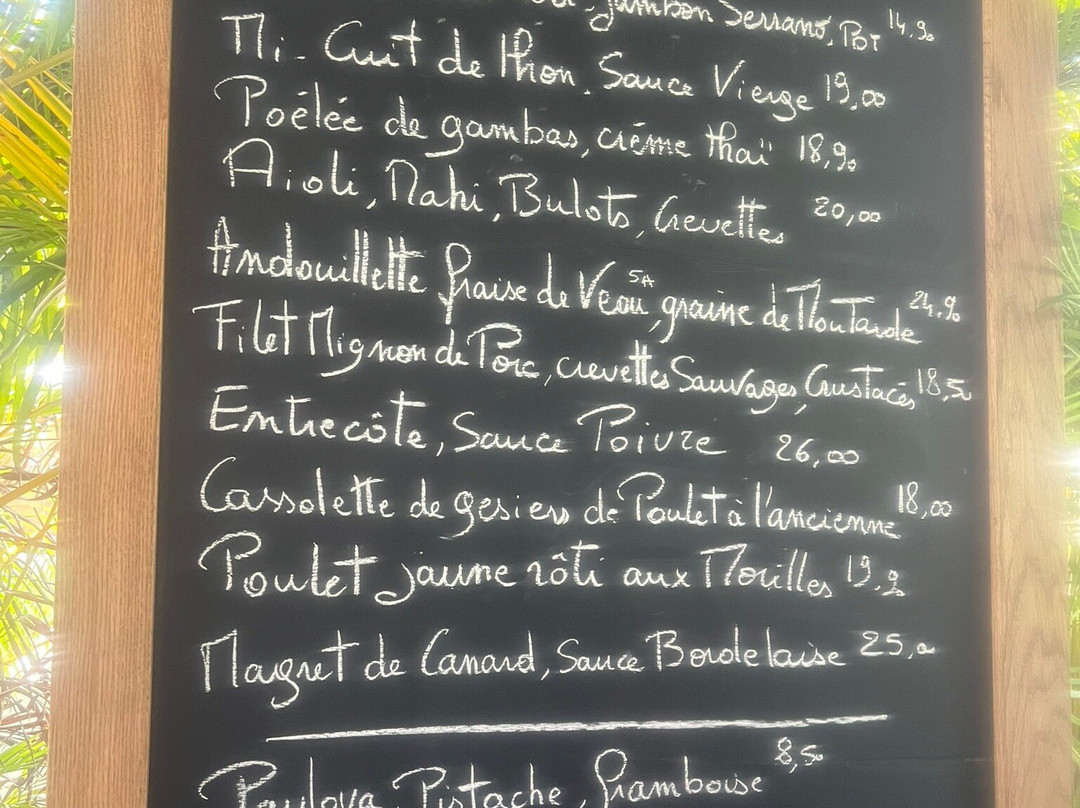 Jambon Serrano, Pot 14.90
Mi-Cuit de thon, Sauce Vierge 19,00
Poélée de gambas, crème thaï 18,90
Aioli, Mahi, Bulots, Crevettes 20,00
Andouillette fraise de Veau 5A, graine de Moutarde 24.90
Filet Mignon de Porc, crevettes Sauvages, Crustacés 18,50
Entrecôte, Sauce Poivre 26,00
Cassolette de gesiers de Poulet à l'ancienne 18,00
Poulet jaune rôti aux Morilles
Magret de Canard, Sauce Bordelaise
Pavlova, Pistache, framboise 8,50